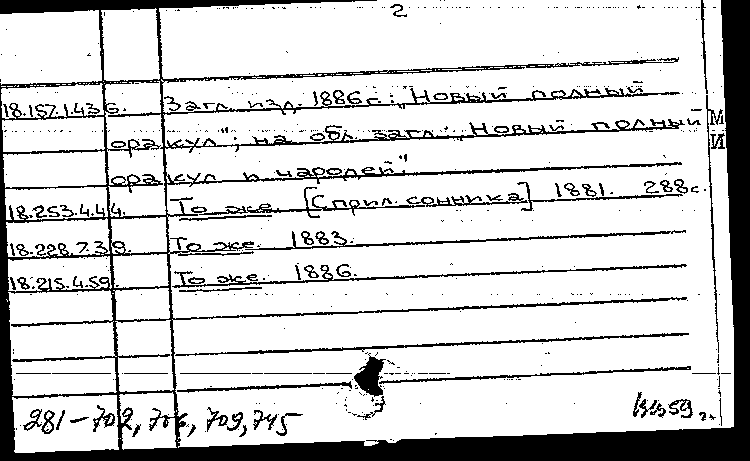 2
18.157.1.436. Загл. изд. 1886 г.: "Новый полный
оракул"; на обл. загл.: "Новый полный
оракул и чародей".
18.253.4.44. То же. [С прил. сонника] 1881. 288 с.
18.228.7.39. То же. 1883.
18.215.4.59. То же. 1886.
281-702, 706, 709, 745
М
И